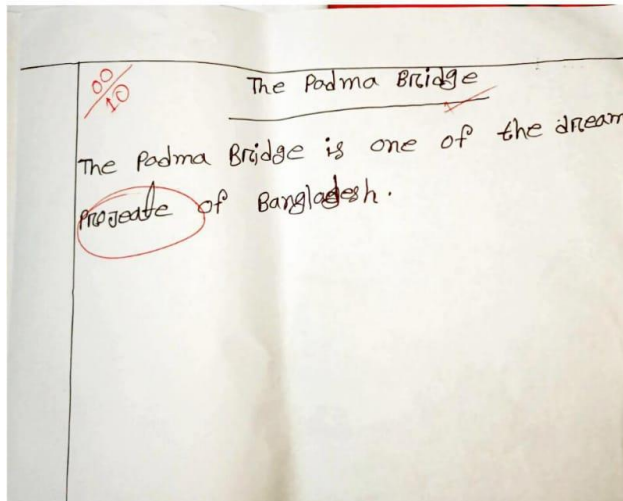 00/10
The Padma Bridge
The Padma Bridge is one of the dream
Projeate of Bangladesh.